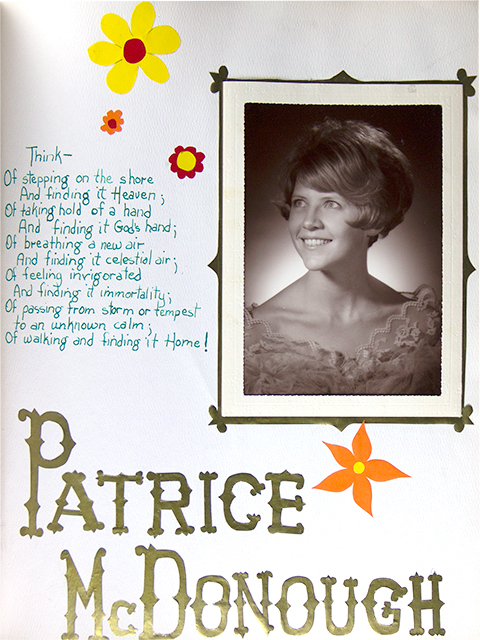 Think-
Of stepping on the shore
And finding it Heaven;
Of taking hold of a hand
And finding it God's hand;
Of breathing a new air
And finding it celestial air;
Of feeling invigorated
And finding it immortality;
Of passing from storm or tempest
to an unknown calm;
Of walking and finding it Home!
PATRICE
McDONOUGH